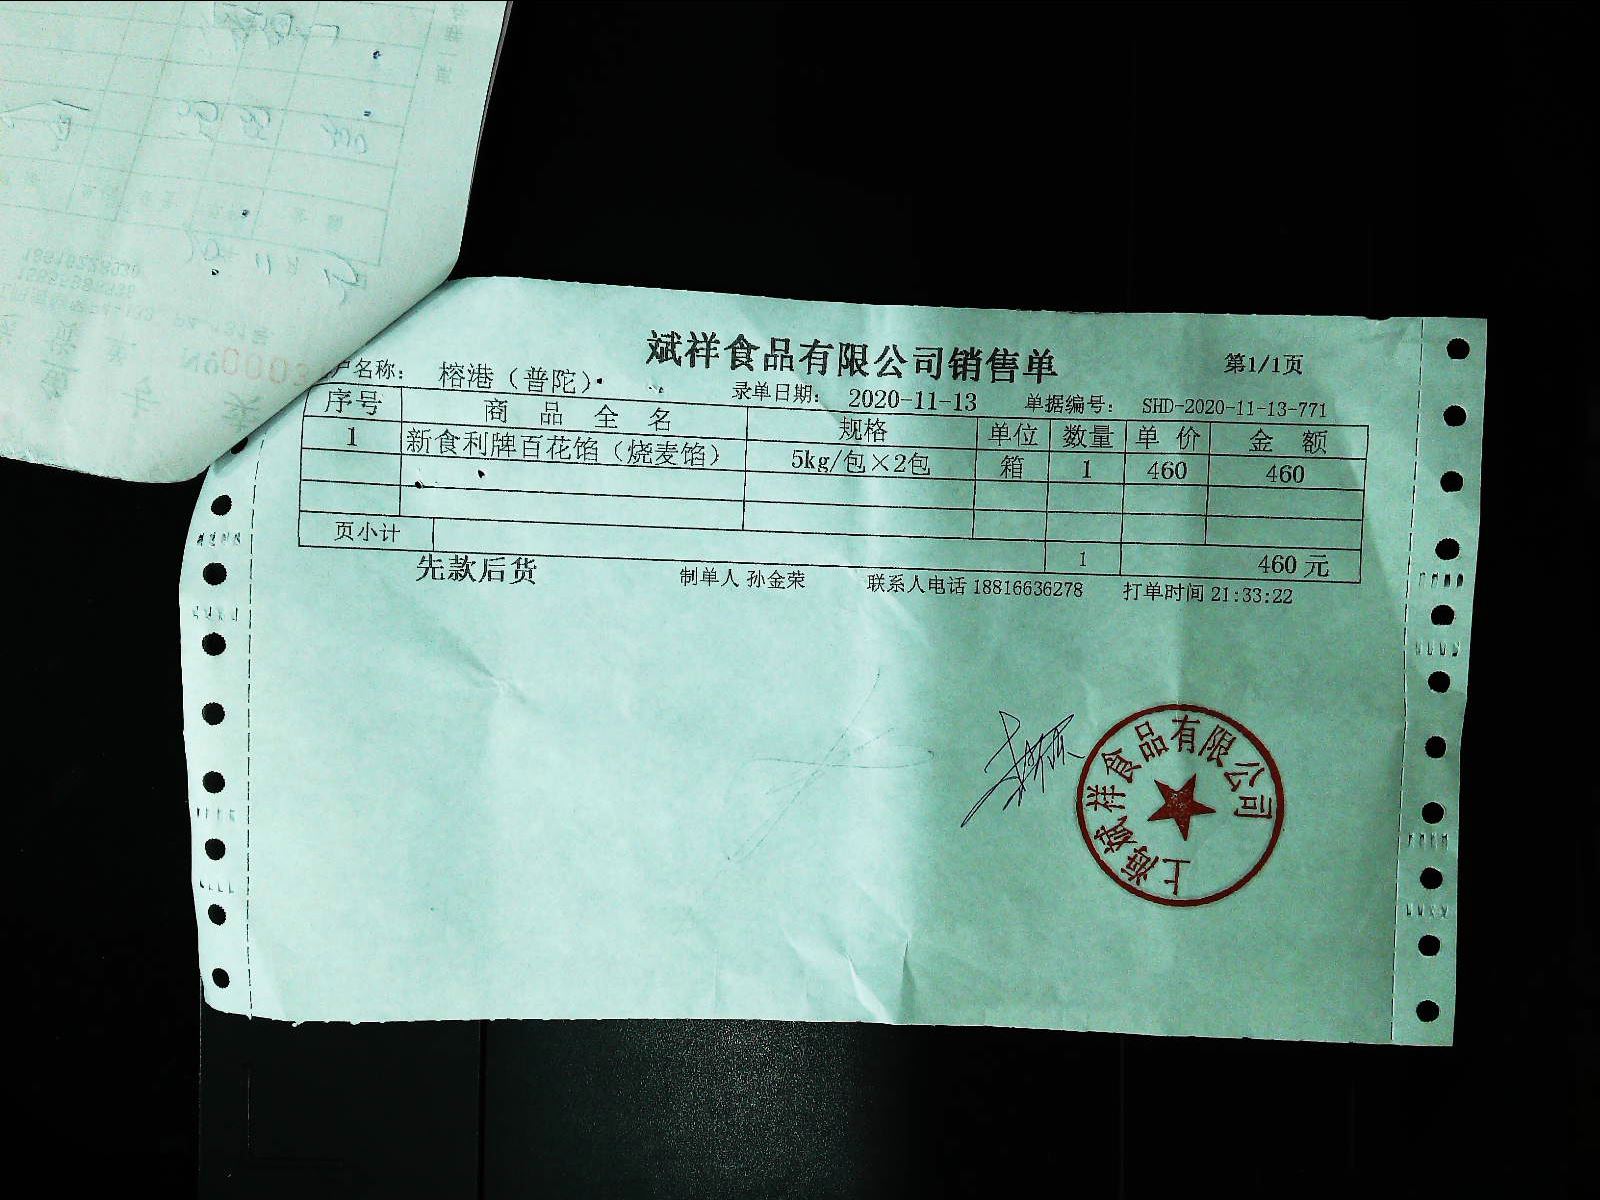 斌祥食品有限公司销售单
第1/1页
户名称： 榕港（普陀） 录单日期： 2020-11-13 单据编号： SHD-2020-11-13-771
序号 商品全名 规格 单位 数量 单价 金额
1 新食利牌百花馅（烧麦馅） 5kg/包×2包 箱 1 460 460
页小计 1 460元
先款后货 制单人 孙金荣 联系人电话 18816636278 打单时间 21:33:22
上海斌祥食品有限公司